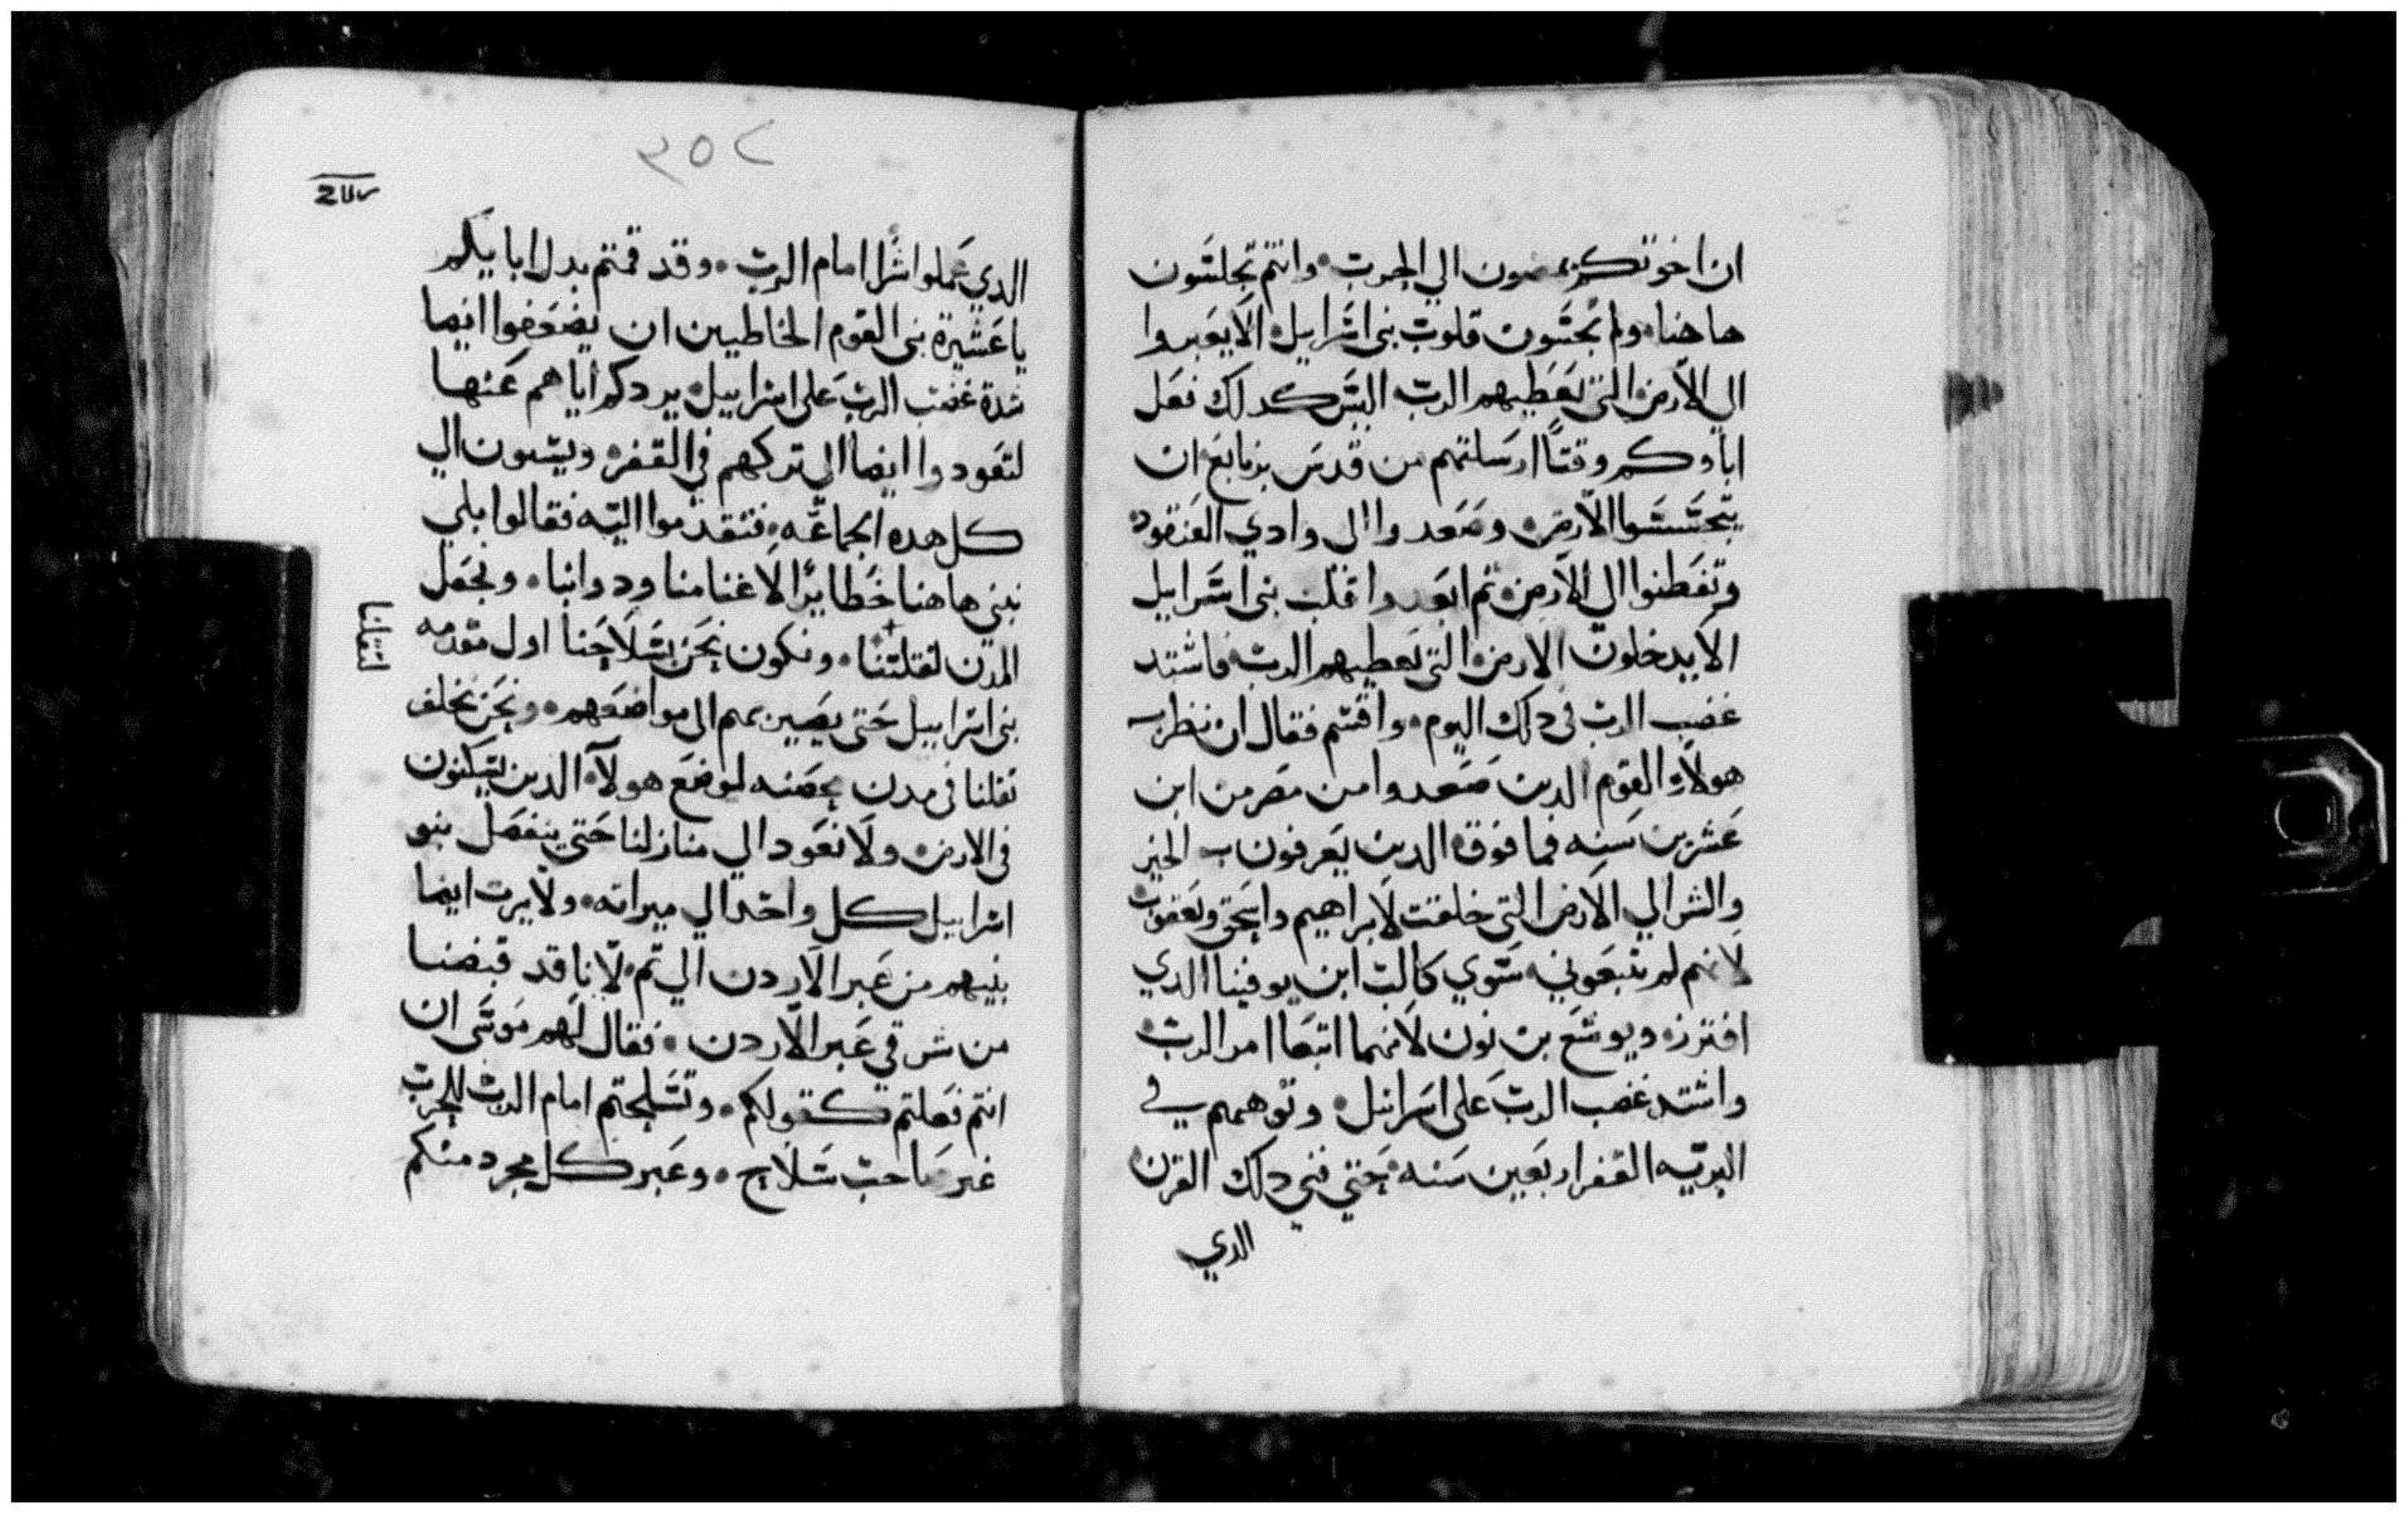 ان اخوتكم يمضون الي الحرب • وانتم تجلسون
هاهنا • ولم تجسون قلوب بني اسراييل • الا يعبروا
الي الارض التي يعطيهم الرب اليس كدلك فعل
اباوكم وقتا ارسلتهم من قدس برنابع ان
يتجسسوا الارض • وصعدوا الى وادي العنقود •
وتفطنوا الى الارض • تم ابعدوا قلب بني اسراييل
الا يدخلون الارض التي يعطيهم الرب فاشتد
غضب الرب في دلك اليوم • واقسم فقال ان نظرت
هولاء القوم الدين صعدوا من مصر من ابن
عشرين سنه فما فوق الدين يعرفون الخير
والشر الي الارض التي حلفت لابراهيم واسحق ويعقوب •
لانهم لم يتبعوني • سوي كالب ابن يوفينا الدي
افترز • ويوشع بن نون لانهما اتبعا امر الرب •
واشتد غضب الرب على اسراىيل • وتوههم في
البريه القفر اربعين سنه • حتي فني دلك القرن
الدي
٣٥٢
الدي عملوا شرا امام الرب • وقد قمتم بدل اباييكم
يا عشيرة بني القوم الخاطيين ان يضعفوا ايضا
شدة غضب الرب على اسراييل • يردكم اياهم عنها
لتعودوا ايضا الى تركهم في القفر • ويتمون الي
كل هده الجماعه • فتقدموا اليه فقالوا بلي
نبني هاهنا حظايرا لاغنامنا ودوابنا • ونجعل
المدن لثقلتنا • ونكون نحن بسلاحنا اول مقدمه
لثقلنا
بني اسراييل حتى يصيرهم الى مواضعهم • ونحن نخلف
ثقلنا في مدن محصنه لموضع هولاء الدين يسكنون
في الارض • ولا نعود الي منازلنا حتي ينفصل بنو
اسراييل كل واحد الي ميراته • ولا يرت ايضا
بنيهم من عبر الاردن الي تم • لانا قد قبضنا
من شرقي عبر الاردن • فقال لهم موسى ان
انتم فعلتم كقولكم • وتسلحتم امام الرب للحرب
غير صاحب سلاح • وعبر كل مجرد منكم